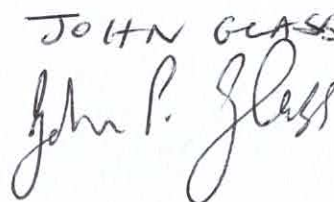 JOHN GLASS
John P. Glass